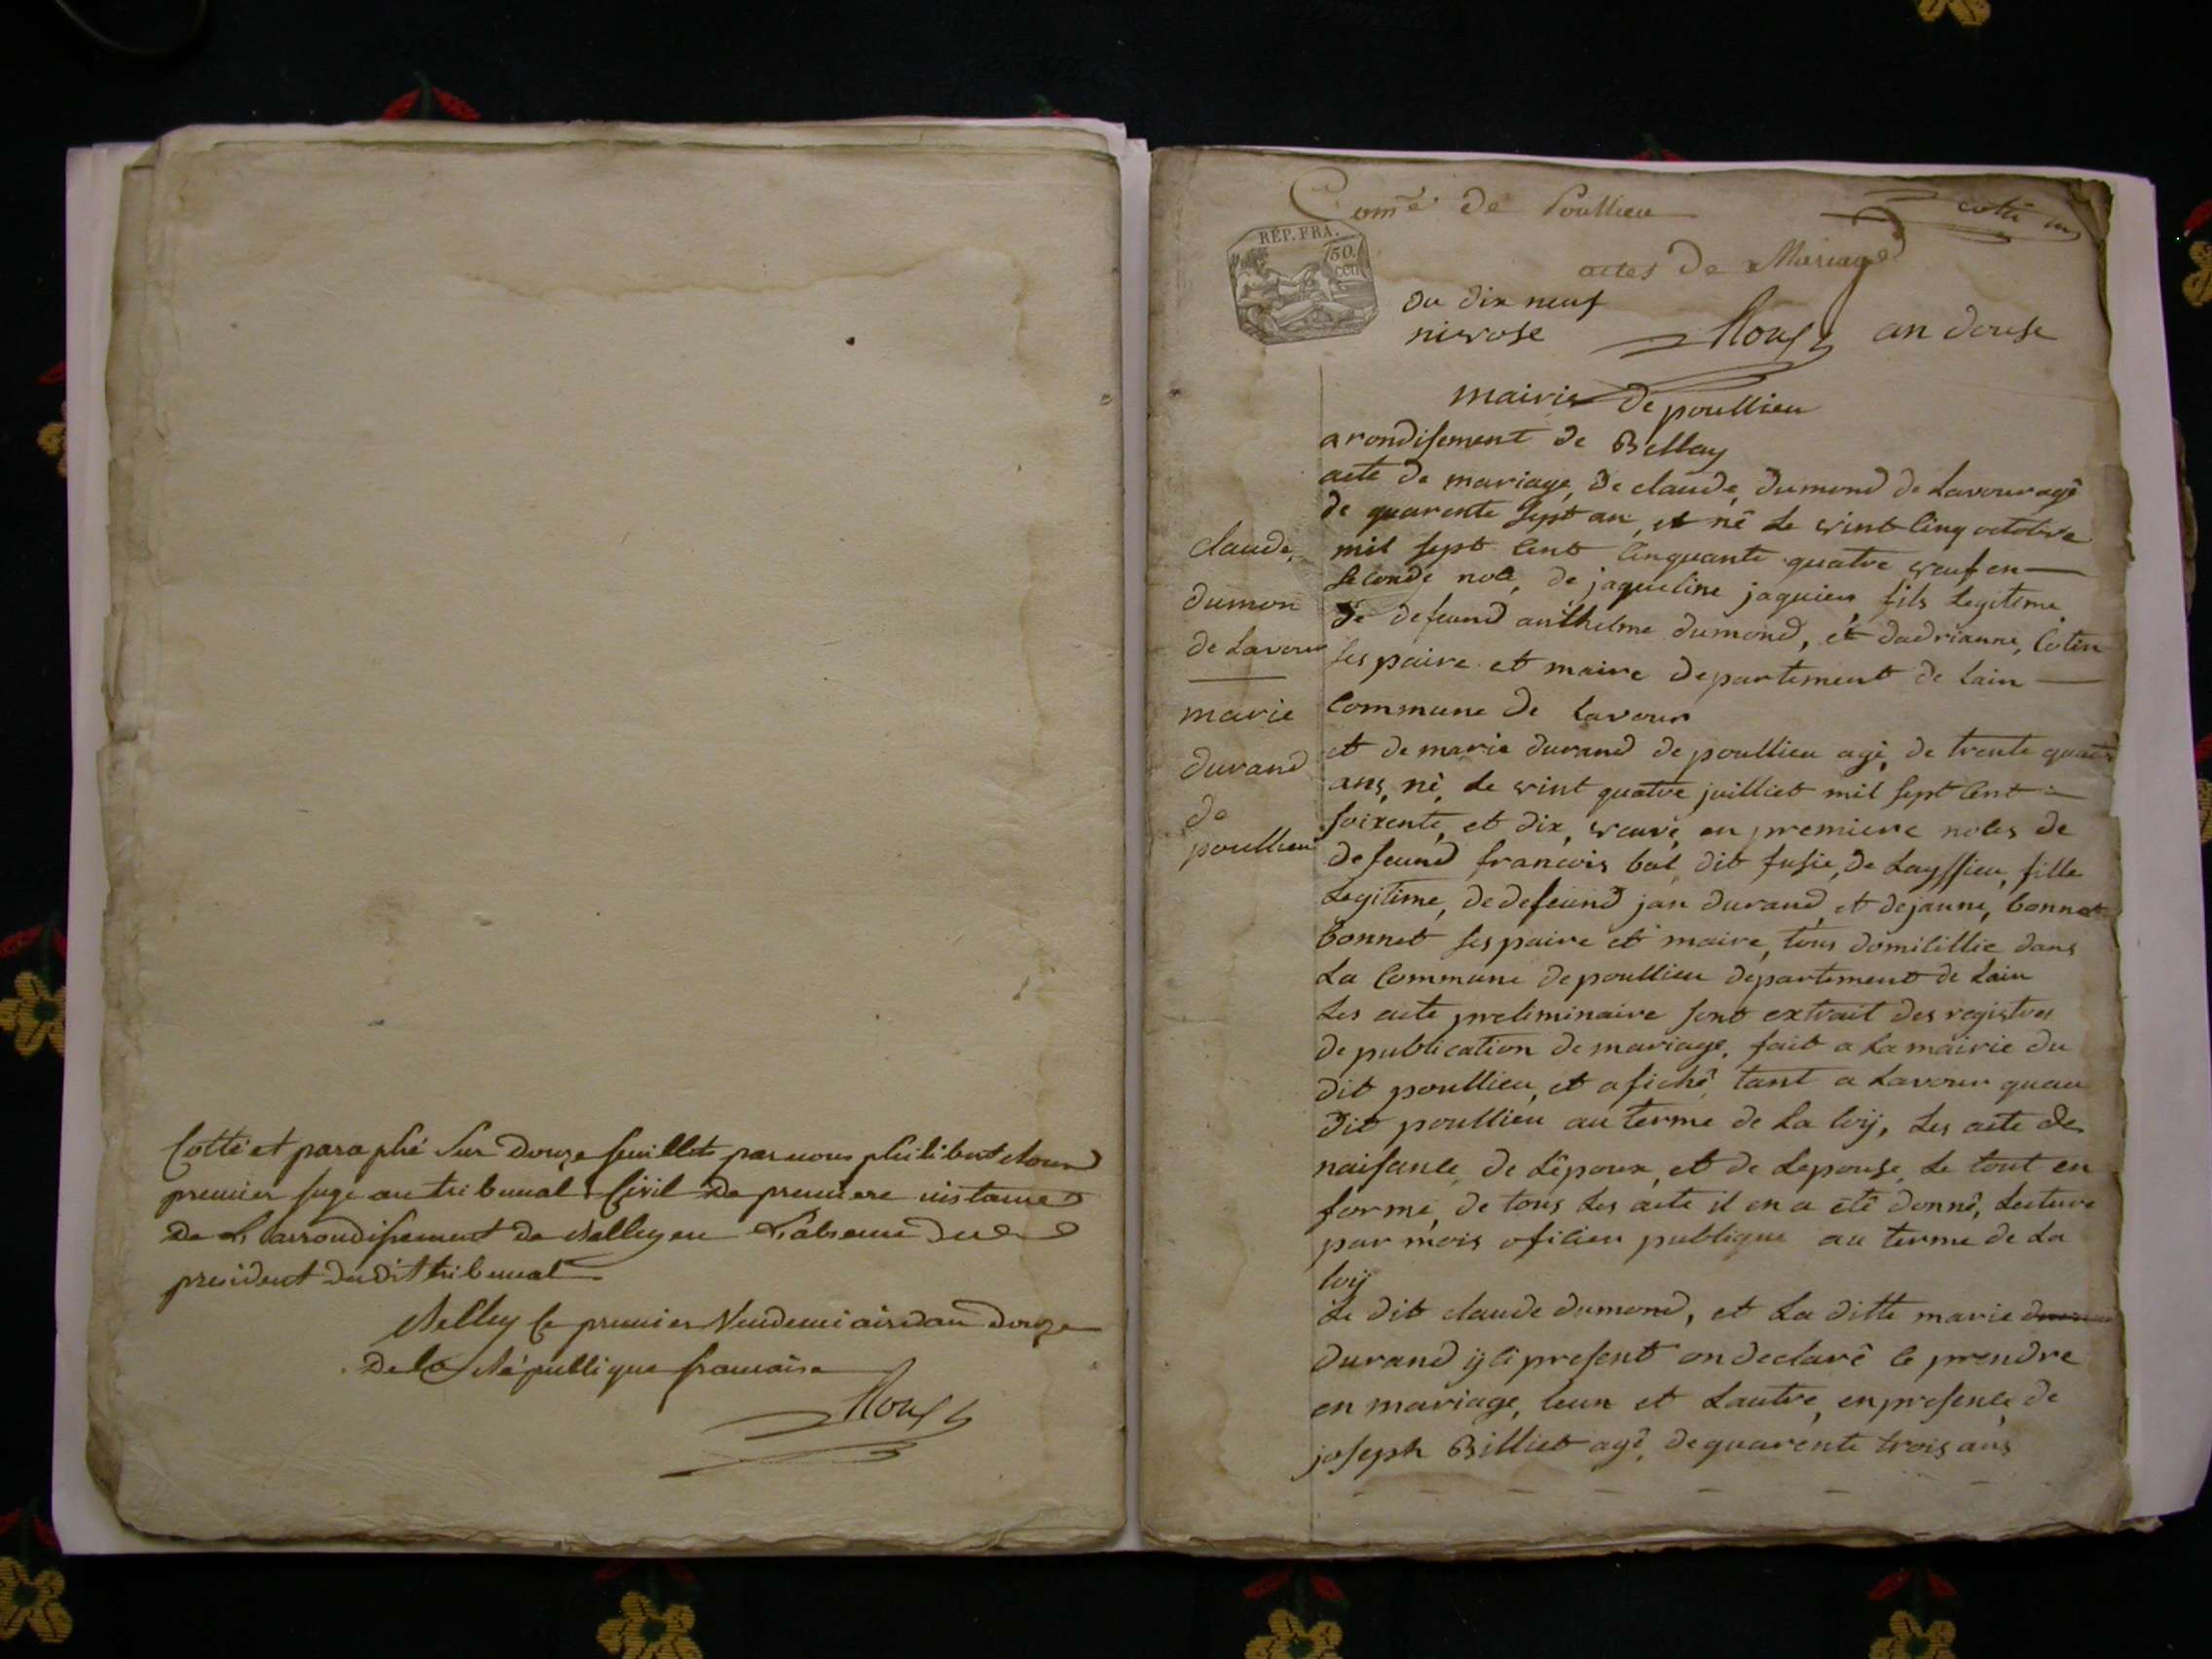 Cotté et paraphé Sur Douze feuillets par nous philibert
premier juge au tribunal Civil De premiere instance
De L'arrondissement de Belley en L'absence du
president du dit tribunal
Belley le premier Vendemiaire an Douze
De la République francaise
Com.e De Poullieu
cotté un
REP. FRA.
50.
cen
actes De Mariage
Du dix neuf
nivose
an douse
mairie De poullieu
arondisement de Bellay
acte de mariage, de claude, dumond de Lavour agé
de quarente sept an, et né Le vint cinq octobre
mil sept cent cinquante quatre veuf en
seconde noce, de jaqueline jaquier fils Legitime
De defeund anthelme dumond, et dadrianne, Cotin
ses paire et maire departement de Lain
Commune de Lavour
et de marie durand de poullieu agé, de trente quatre
ans, né, Le vint quatre juilliet mil sept cent
soixente, et dix, veuve, en premiere noces de
defeund francois bal dit fusie, de Layssieu, fille
Legitime, de defeund jan durand, et de janne, bonnet
bonnet ses paire et maire, tous domicillie dans
La Commune de poullieu departement de Lain
Les acte preliminaire sont extrait des registres
de publication de mariage, fait a La mairie du
dit poullieu, et afiché tant a Lavour quau
Dit poullieu au terme de La loÿ, Les acte de
naisance, de Lépoux, et de Lepouse, Le tout en
forme, de tous Les acte il en a été donné, Lecture
par mois oficier publique au terme de La
loÿ
Le dit claude dumond, et La ditte marie
Durand ÿci present on declaré ce prendre
en mariage, leun et Lautre, en presence de
joseph Billiet agé, de quarente trois ans
claude,
dumon
de Lavour
marie
durand
de
poullieu